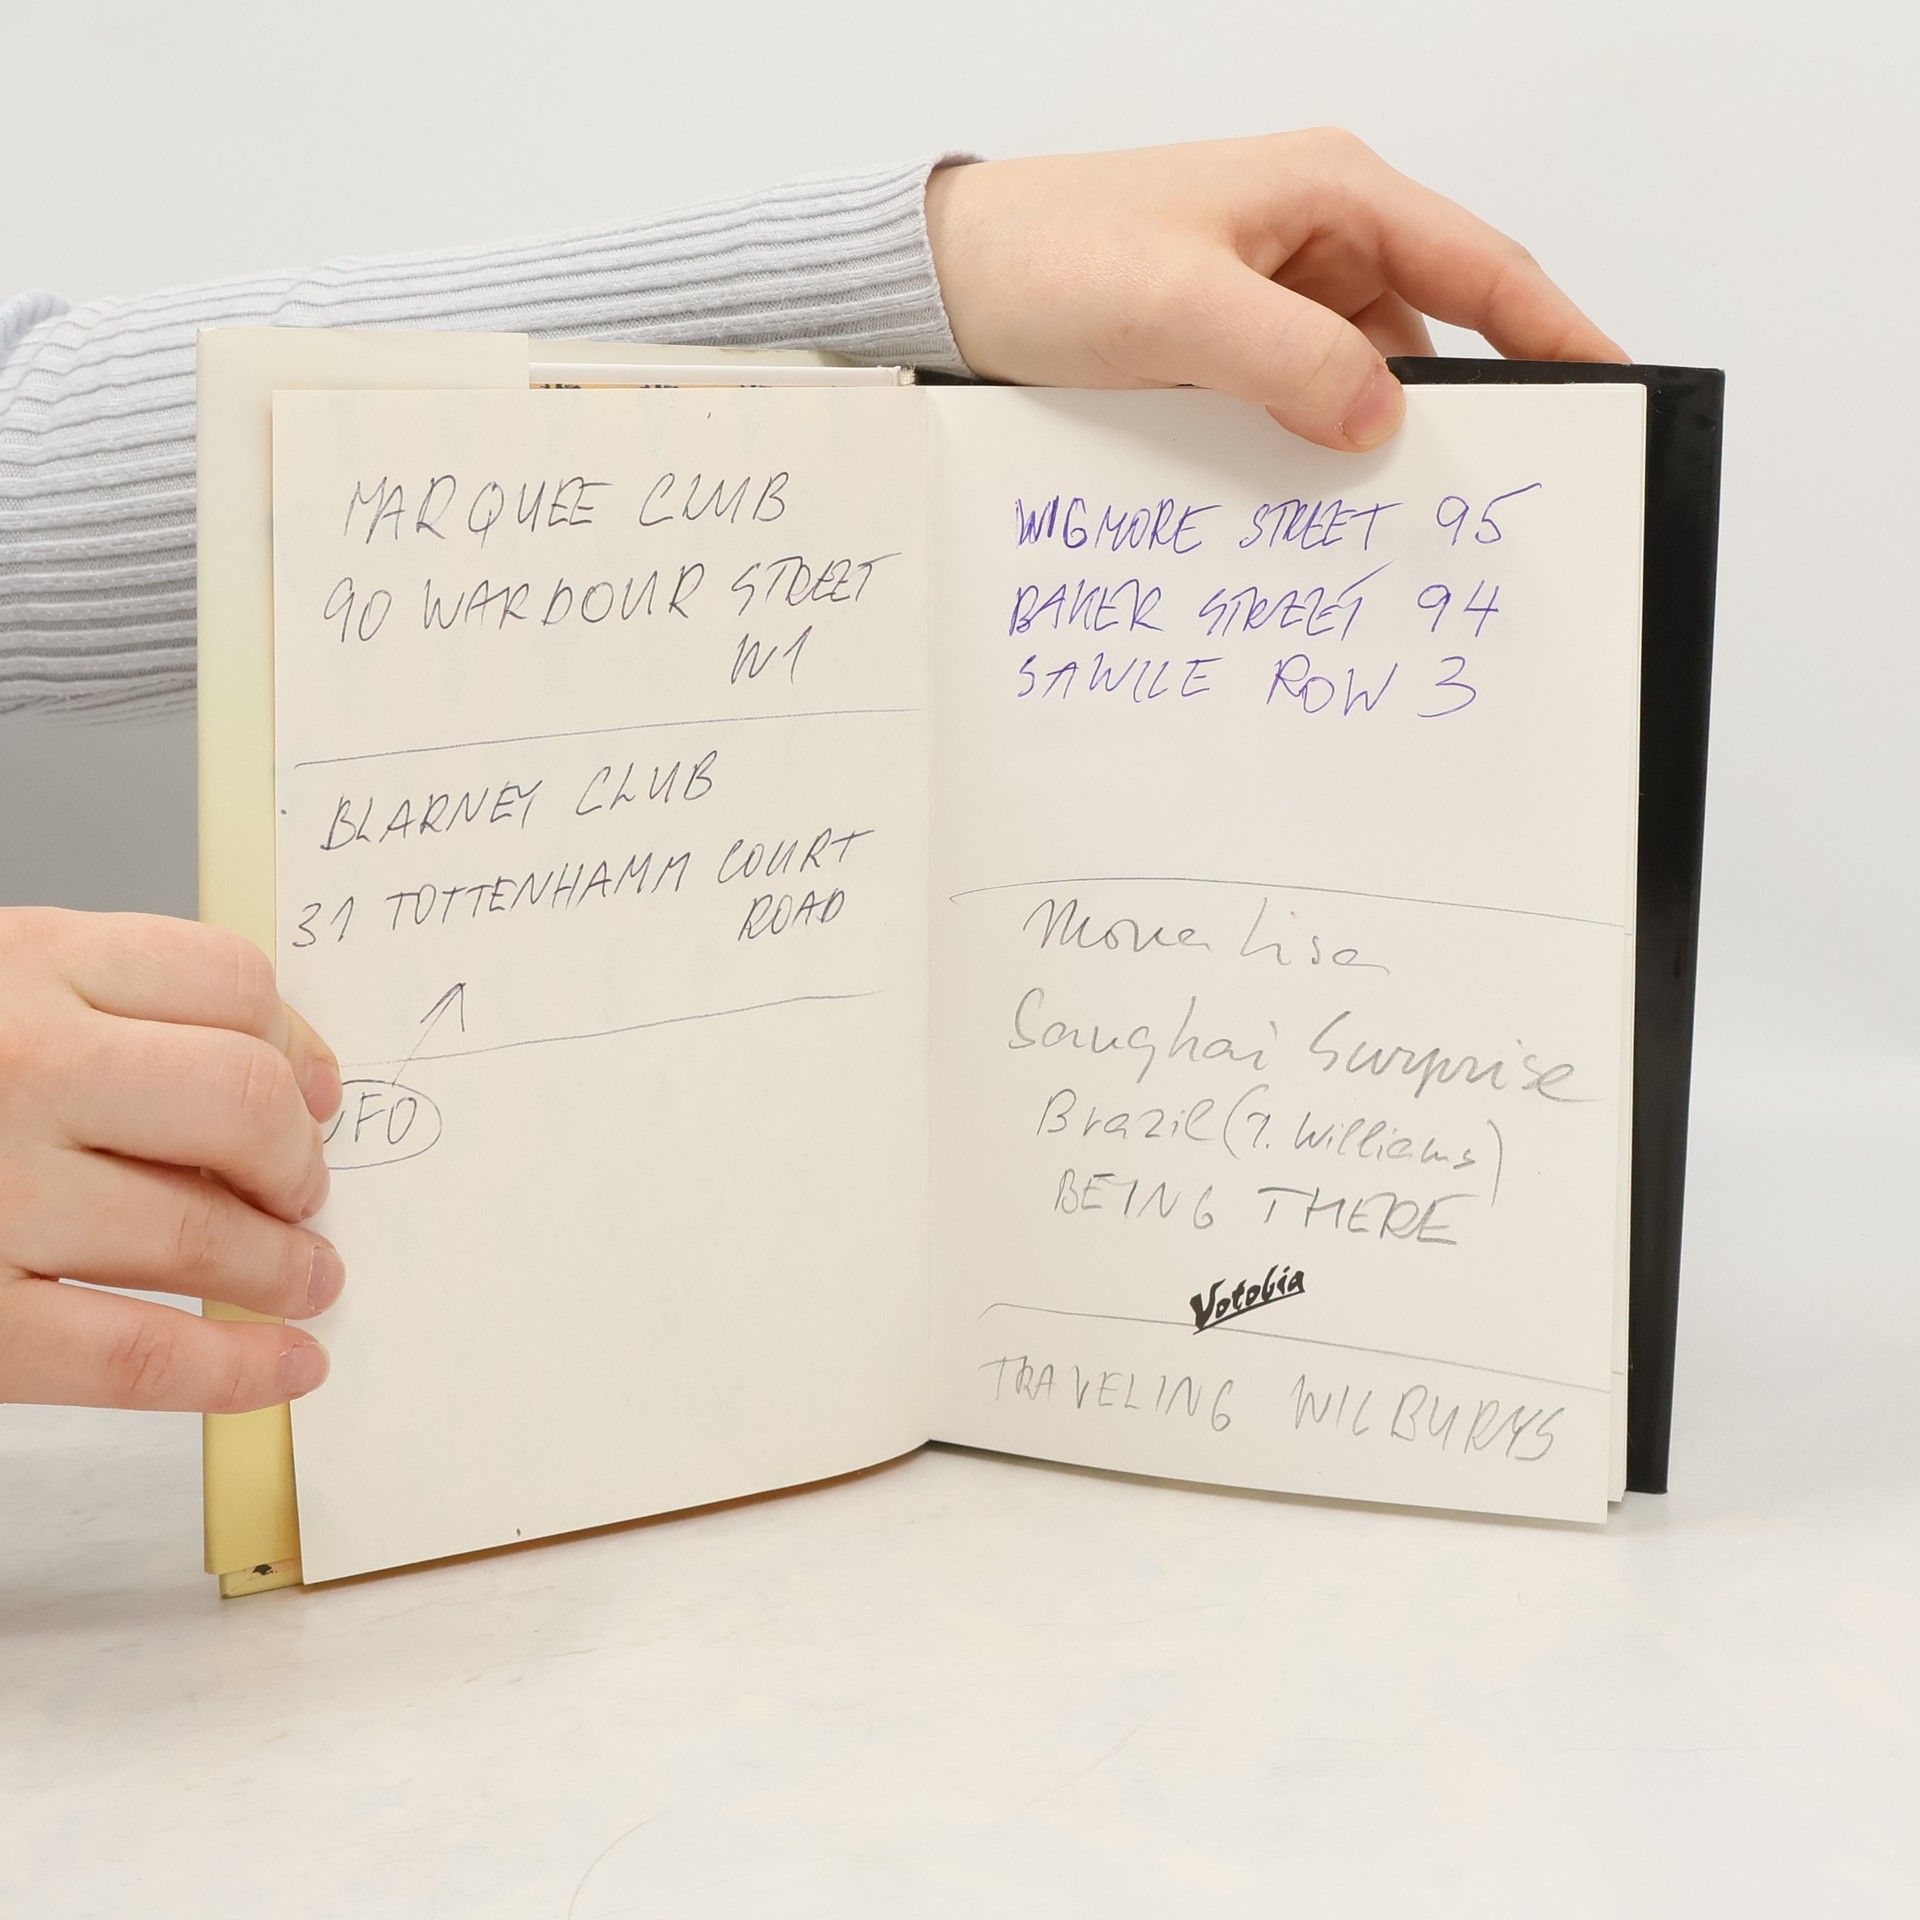 MARQUEE CLUB
90 WARDOUR STREET
W1
BLARNEY CLUB
31 TOTTENHAMM COURT
ROAD
UFO
WIGMORE STREET 95
BAKER STREET 94
SAWILE ROW 3
Mona Lisa
Sanghai Surprise
Brazil (J. Williams)
BEING THERE
Votobia
TRAVELING WILBURYS